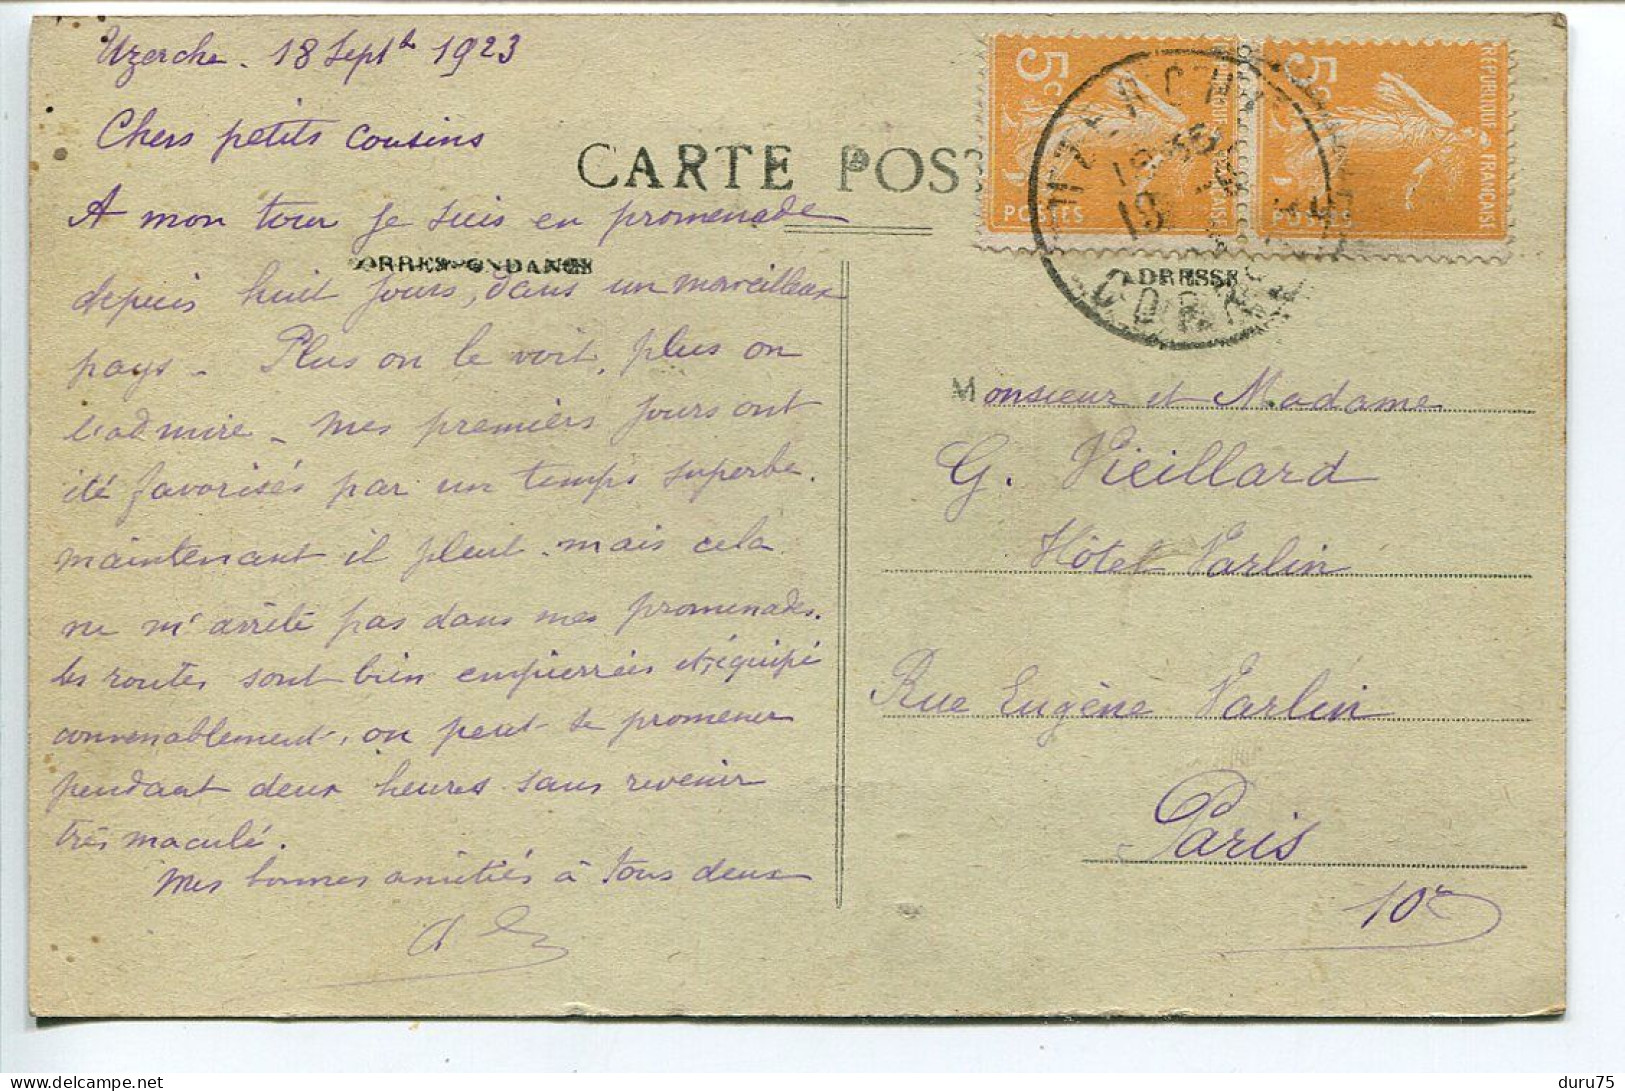 Uzerche . 18 Septb 1923
Chers petits cousins
A mon tour je suis en promenade
depuis huit jours, dans un merveilleux
pays - Plus on le voit, plus on
l'admire - mes premiers jours ont
été favorisés par un temps superbe.
maintenant il pleut. mais cela
ne m'arrête pas dans mes promenades.
les routes sont bien empierrées et, équipé
convenablement, on peut se promener
pendant deux heures sans revenir
très maculé.
Mes bonnes amitiés à tous deux
CARTE POST
CORRESPONDANCE
5c
POSTES
REPUBLIQUE FRANÇAISE
5c
POSTES
REPUBLIQUE FRANÇAISE
UZERCHE
19
CORREZE
ADRESSE
Monsieur et Madame
G. Vieillard
Hôtel Varlin
Rue Eugène Varlin
Paris
10e
delcampe.net
duru75